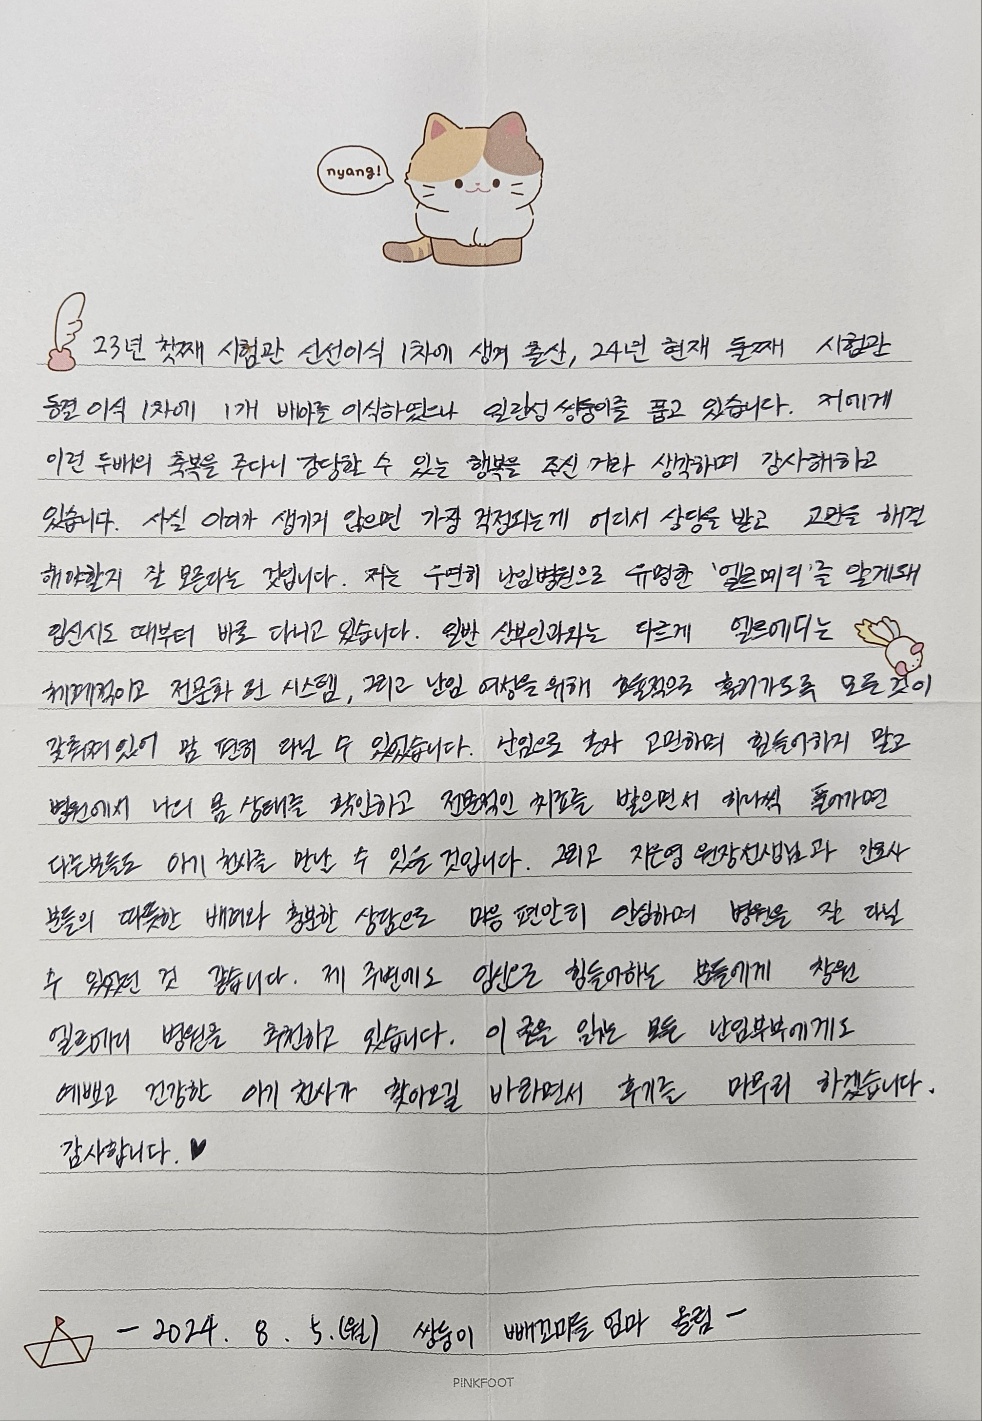 nyang!
23년 첫째 시험관 신선이식 1차에 생겨 출산, 24년 현재 둘째 시험관
동결 이식 1차에 1개 배아를 이식하였으나 일란성 쌍둥이를 품고 있습니다. 저에게
이런 두배의 축복을 주다니 감당할 수 있는 행복을 주신 거라 생각하며 감사해하고
있습니다. 사실 아이가 생기지 않으면 가장 걱정되는게 어디서 상담을 받고 고민을 해결
해야할지 잘 모른다는 것입니다. 저는 우연히 난임병원으로 유명한 '엘르메디'를 알게돼
임신시도 때부터 바로 다니고 있습니다. 일반 산부인과와는 다르게 엘르메디는
체계적이고 전문화 된 시스템, 그리고 난임 여성을 위해 효율적으로 흘러가도록 모든것이
갖춰져있어 맘 편히 다닐 수 있었습니다. 난임으로 혼자 고민하며 힘들어하지 말고
병원에서 나의 몸 상태를 확인하고 전문적인 치료를 받으면서 하나씩 풀어가면
다른분들도 아기 천사를 만날 수 있을 것입니다. 그리고 지은영 원장선생님과 간호사
분들의 따뜻한 배려와 충분한 상담으로 마음 편안히 안심하며 병원을 잘 다닐
수 있었던 것 같습니다. 제 주변에도 임신으로 힘들어하는 분들에게 창원
엘르메디 병원을 추천하고 있습니다. 이 글을 읽는 모든 난임부부에게도
예쁘고 건강한 아기 천사가 찾아오길 바라면서 후기를 마무리 하겠습니다.
감사합니다. ♥
- 2024. 8. 5.(월) 쌍둥이 빼꼬미들 엄마 올림 -
PINKFOOT